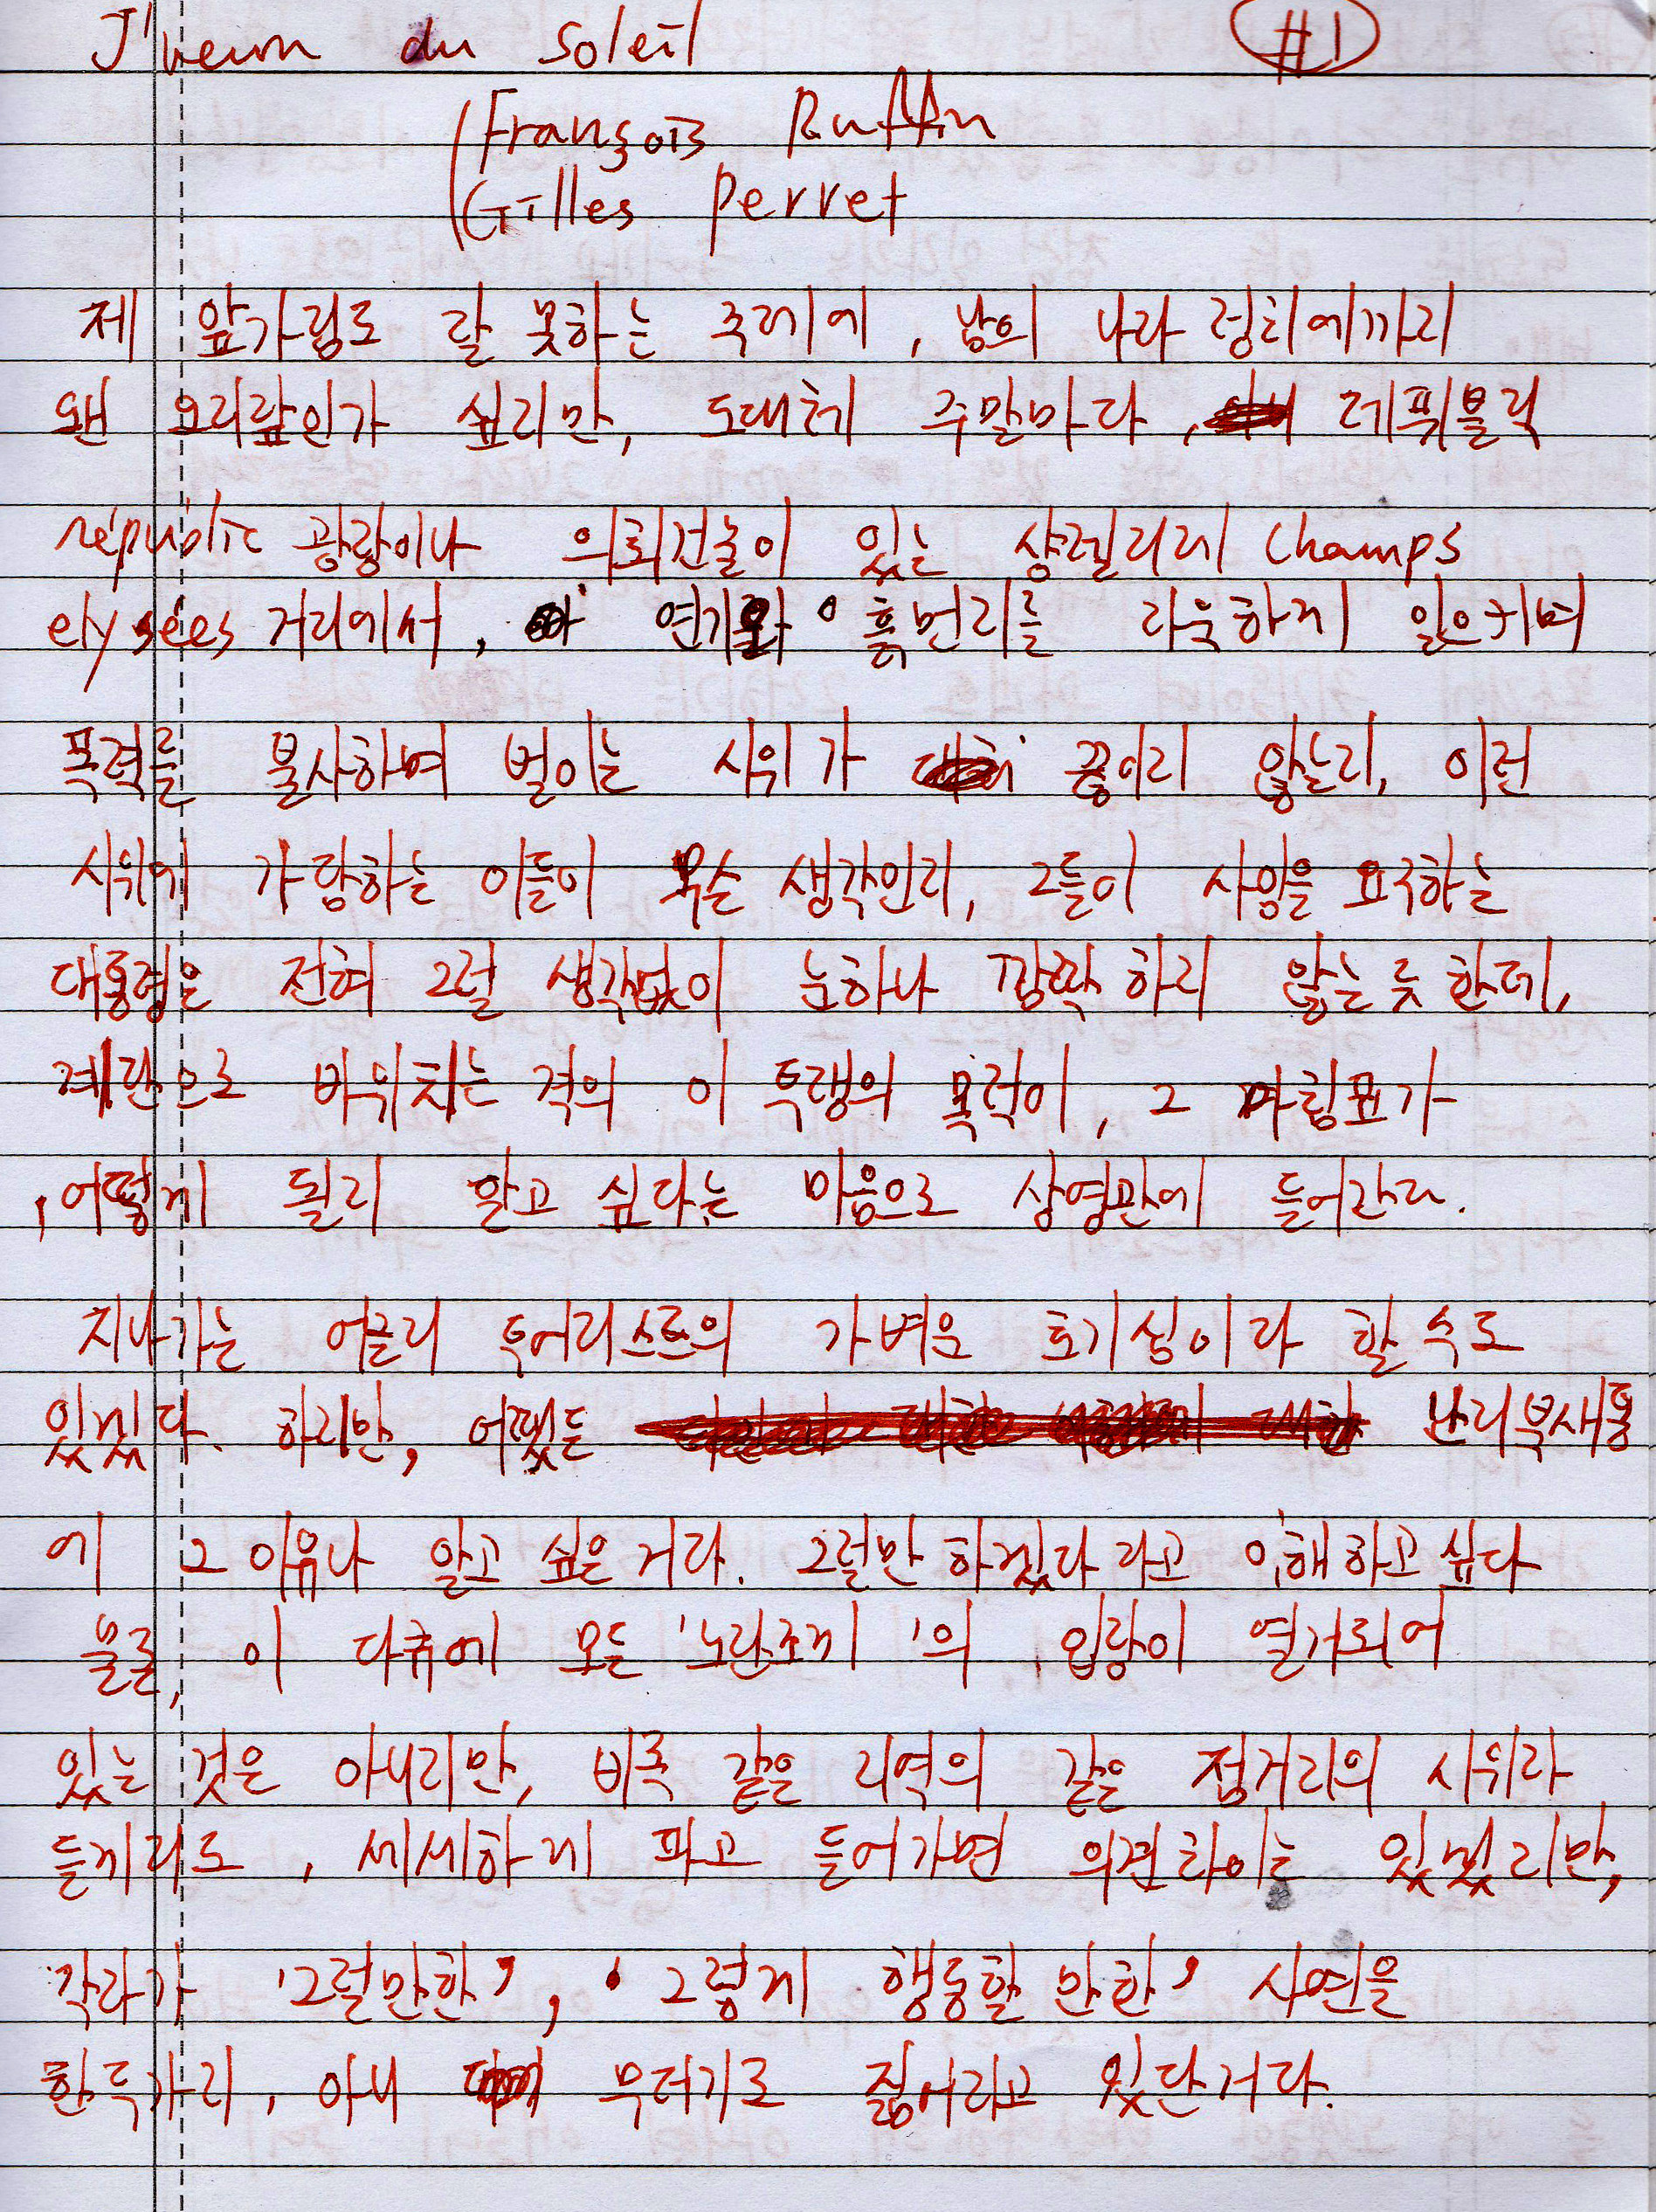 J'veux du soleil #1
François Ruffin
Gilles perret
제 앞가림도 잘 못하는 주제에, 남의 나라 정치에까지
왠 오지랖인가 싶지만, 도대체 주말마다, 레퓌블릭
républic 광장이나 의회건물이 있는 샹젤리제 Champs
elysées 거리에서, 연기와 흙먼지를 자욱하게 일으키며
폭력을 불사하며 벌이는 시위가 끊이지 않는지, 이런
시위에 가담하는 이들이 무슨 생각인지, 그들이 사임을 요구하는
대통령은 전혀 그럴 생각없이 눈하나 깜짝하지 않는 듯 한데,
계란으로 바위치는 격의 이 투쟁의 목적이, 그 마침표가
, 어떻게 될지 알고 싶다는 마음으로 상영관에 들어간다.
지나가는 어글리 투어리스트의 가벼운 호기심이라 할 수도
있겠다. 하지만, 어쨌든 난리부새통
에 그 이유나 알고 싶은 거다. 그럴만 하겠다 라고 이해하고 싶다
물론, 이 다큐에 모든 '노란조끼'의 입장이 열거되어
있는 것은 아니지만, 비록 같은 지역의 같은 점거지의 시위자
들끼리도, 세세하게 파고 들어가면 의견차이는 있겠지만,
각자가 '그럴만한', '그렇게 행동할 만한' 사연을
한두가지, 아니 무더기로 짊어지고 있단거다.